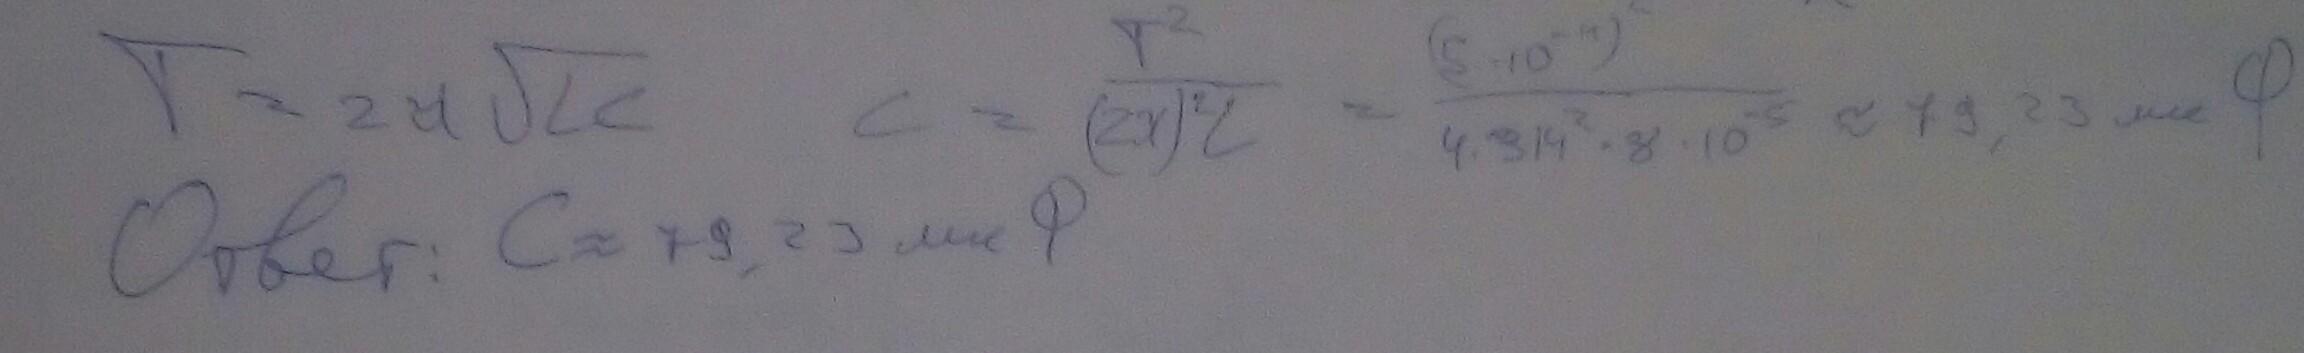 T = 2π√LC C = T²/(2π)²L = (5·10⁻⁴)²/4·3,14²·8·10⁻⁵ ≈ 79,23 мкФ
Ответ: C ≈ 79,23 мкФ